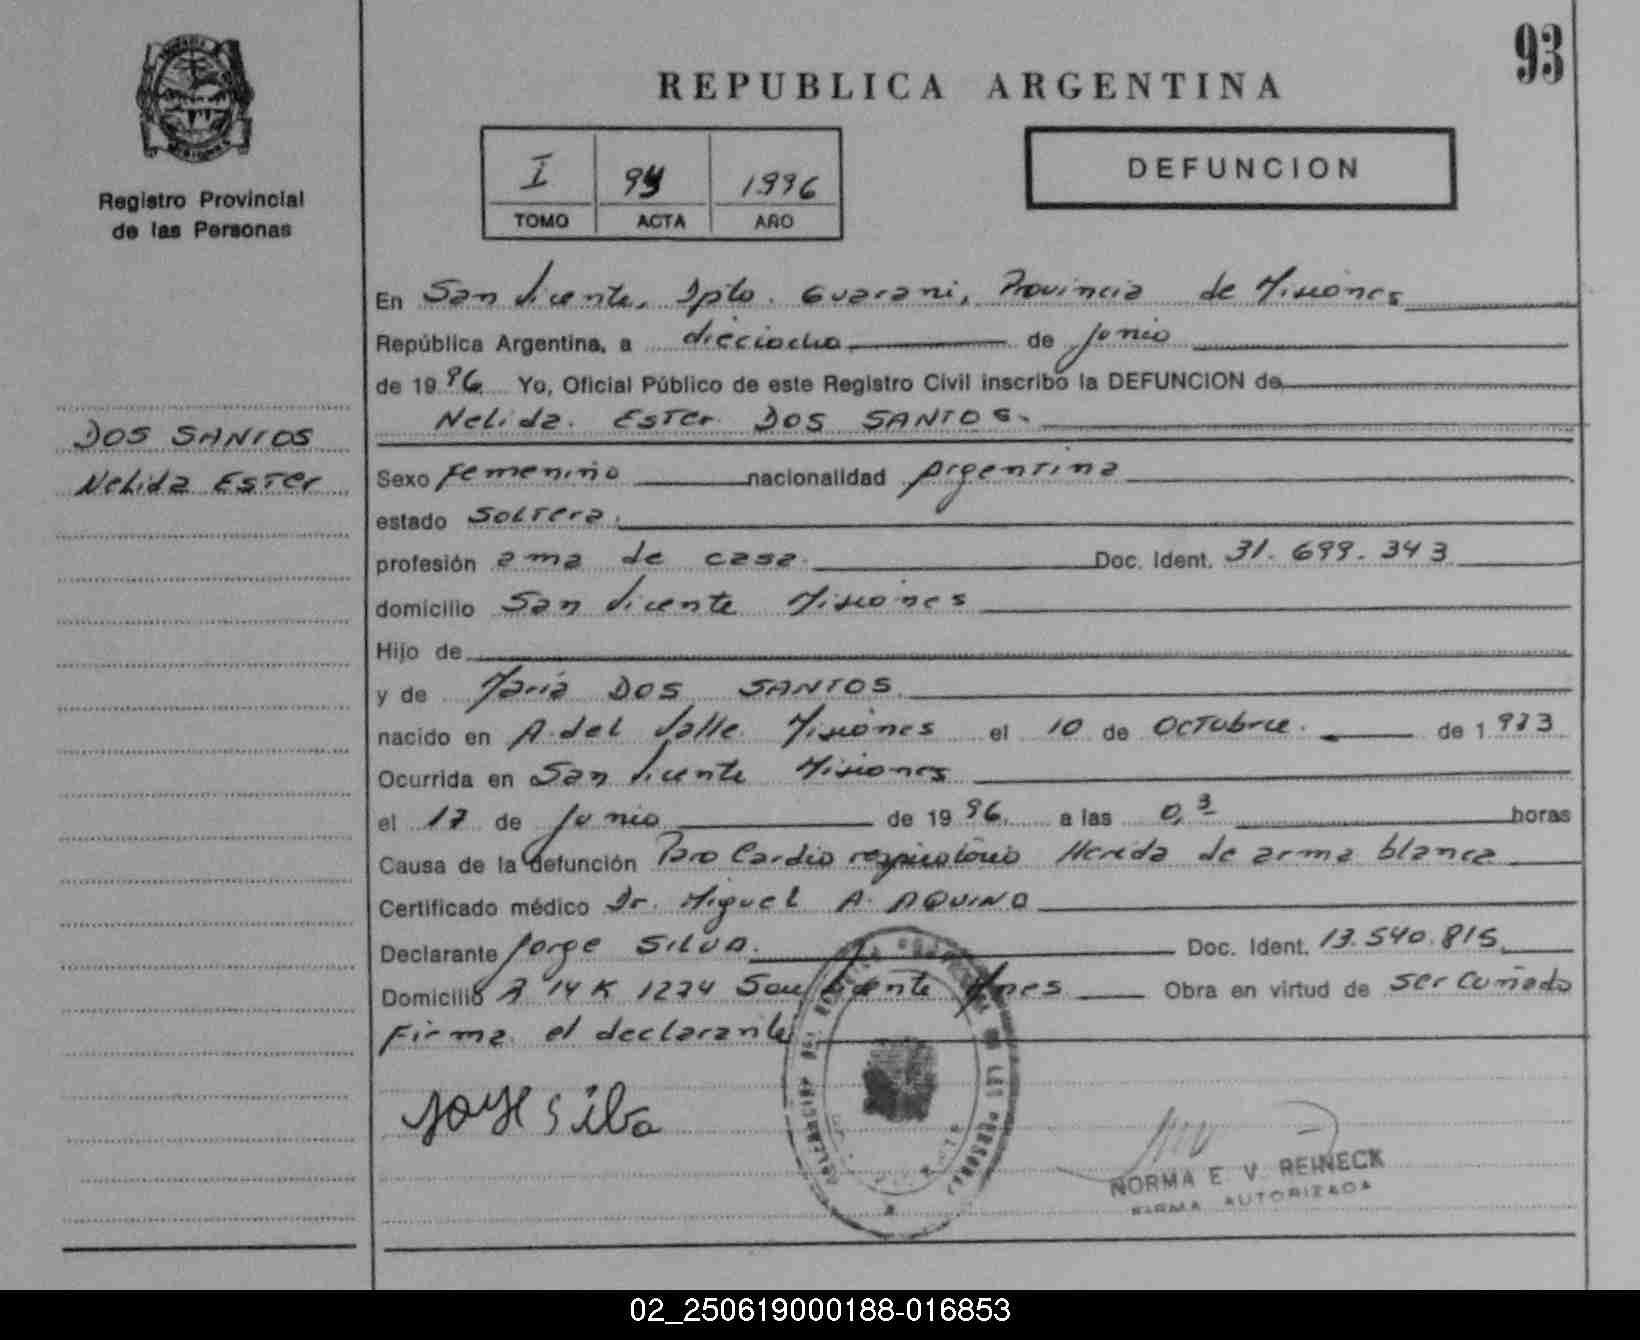 93
REPUBLICA ARGENTINA
MISIONES
Registro Provincial
de las Personas
I 94 1996
TOMO ACTA AÑO
DEFUNCION
En San Vicente, Dpto. Guarani, Provincia de Misiones
República Argentina, a dieciocho de Junio
de 1996 Yo, Oficial Público de este Registro Civil inscribo la DEFUNCION de
Nelida Ester DOS SANTOS.
DOS SANTOS
Nelida ESTer
Sexo femenino nacionalidad Argentina
estado SOLTera.
profesión ama de casa. Doc. Ident. 31.699.343
domicilio San Vicente Misiones
Hijo de
y de Maria DOS SANTOS.
nacido en A. del Valle Misiones el 10 de OCTubre. de 1.973
Ocurrida en San Vicente Misiones
el 17 de Junio de 1996 a las 0,3 horas
Causa de la defunción Paro Cardio respiratorio Herida de arma blanca
Certificado médico Dr. Miguel A. AQUINO
Declarante Jorge SILVA. Doc. Ident. 13.540.815
Domicilio R 14 K 1274 San Vicente Mnes Obra en virtud de ser cuñado
Firma el declarante
Jorge Silba
NORMA E. V. REINECK
FIRMA AUTORIZADA
02_250619000188-016853